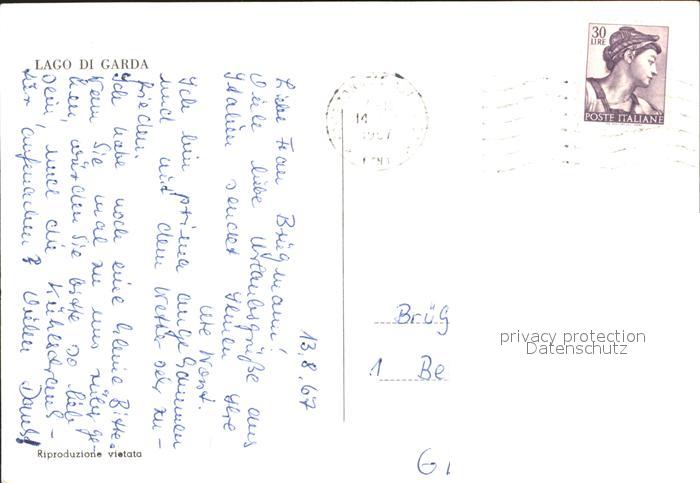 LAGO DI GARDA
13.8.67
Liebe Frau Brügmann!
Viele liebe Urlaubsgrüße aus
Italien sendet Ihnen Ihre
Ute
Ich bin prima angekommen
und mit dem Wetter sehr zu-
frieden.
Ich habe noch eine kleine Bitte.
Wenn Sie mal zu uns rüber ge-
hen, würden Sie bitte so lieb
sein, und die Kühlschrank-
tür aufmachen? Vielen Dank!
Riproduzione vietata
30
LIRE
POSTE ITALIANE
14
1967
Brüg
1 Be
privacy protection
Datenschutz